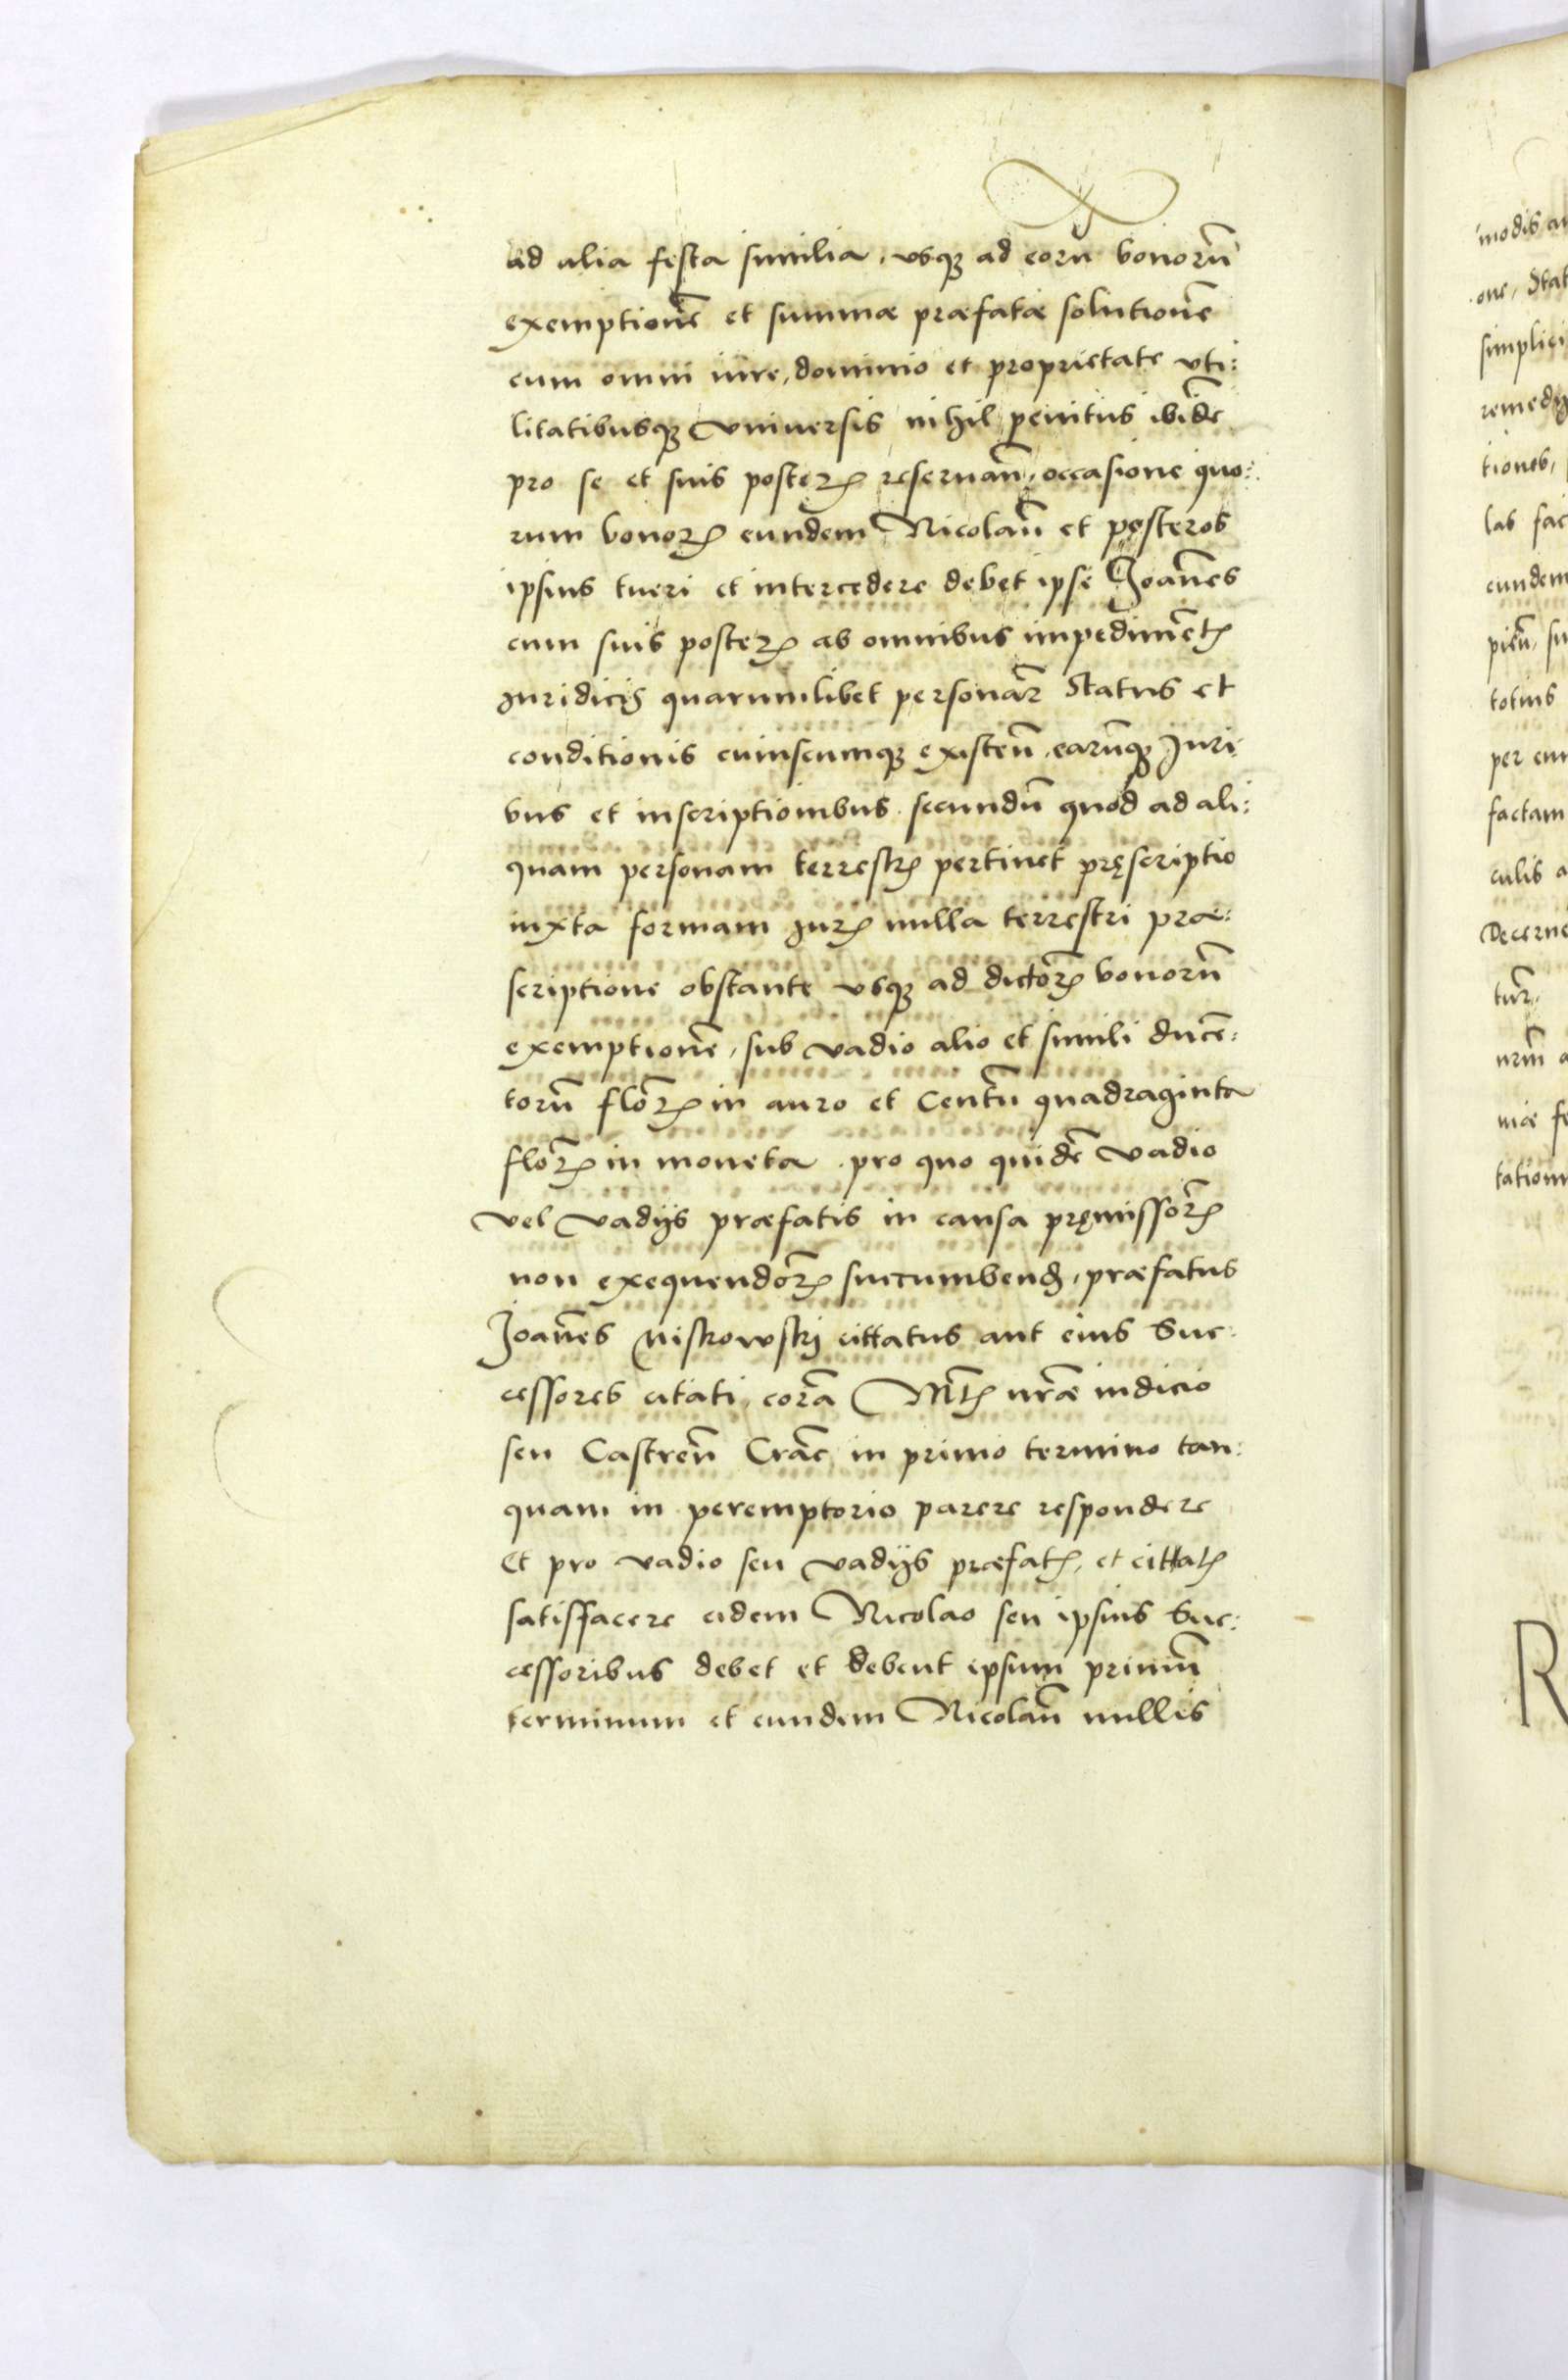 ad alia festa similia, vsq₃ ad eorū bonorū
exemptionē et summæ præfatæ solutionē
cum omni iure, dominio et proprietate vti:
litatibusq₃ vniuersis nihil penitus ibidē
pro se et suis posterꝭ reseruan̄, occasione quo:
rum bonorꝭ eundem Nicolaū et posteros
ipsius tueri et intercedere debet ipse Joannes
cum suis posterꝭ ab omnibus impedimētꝭ
iuridicis quarumlibet personar̄ status et
conditionis cuiuscumq₃ existen̄, earūq₃ Juri
bus et inscriptionibus secundū quod ad ali:
quam personam terrestrꝭ pertinet pręscriptio
iuxta formam Jurꝭ nulla terrestri præ:
scriptione obstante vsq₃ ad dictorꝭ bonorū
exemptionē, sub vadio alio et simili ducē:
torū flor̄ꝭ in auro et Centū quadraginta
flor̄ꝭ in moneta, pro quo quidē vadio
vel vadijs præfatis in causa pręmissorꝭ
non exequendorꝭ succumbendꝭ, præfatus
Joānes Niskowskj cittatus aut eius Suc:
cessores citati, corā Mtꝭ nr̄æ iudicio
seu Castren̄ Crāc in primo termino tan:
quam in peremptorio parere respondere
Et pro vadio seu vadijs præfatꝭ, et cittatꝭ
satisfacere eidem Nicolao seu ipsius Suc:
cessoribus debet et debent ipsum primū
terminum et eundem Nicolaū nullis
modis
one, Stat
simplici
remedy
tiones,
las fac
eundem
pien̄, su
totius
per eun
factam
culis a
Decerne
tur̄,
nr̄m a
niæ fe
tationi
R